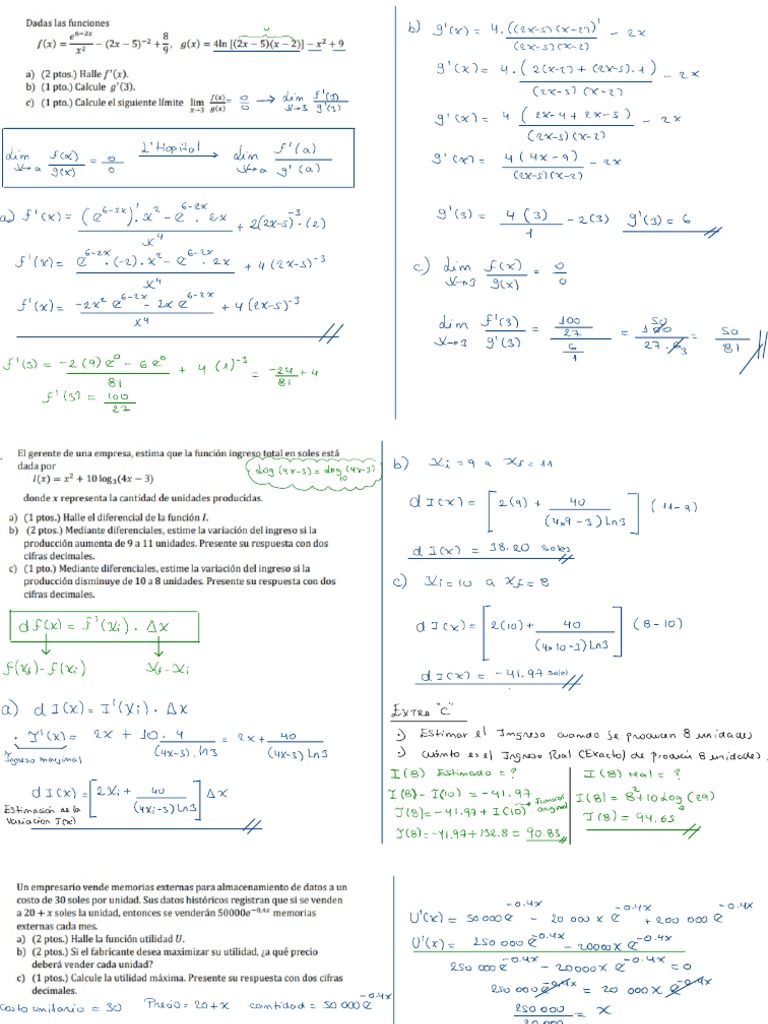 Dadas las funciones
f(x) = e^{6−2x}/x² − (2x − 5)^{−2} + 8/9, g(x) = 4ln [(2x − 5)(x − 2)] − x² + 9
a) (2 ptos.) Halle f'(x).
b) (1 pto.) Calcule g'(3).
c) (1 pto.) Calcule el siguiente límite lim_{x→3} f(x)/g(x) = 0/0 → lim_{x→3} f'(3)/g'(3)
lim_{x→a} f(x)/g(x) = 0/0 L'Hopital → lim_{x→a} f'(a)/g'(a)
a) f'(x) = ((e^{6-2x})'. x² − e^{6-2x}. 2x)/x⁴ + 2(2x-5)^{-3}.(2)
f'(x) = (e^{6-2x}.(-2).x² − e^{6-2x}. 2x)/x⁴ + 4(2x-5)^{-3}
f'(x) = (-2x² e^{6-2x} - 2x e^{6-2x})/x⁴ + 4(2x-5)^{-3}
f'(3) = (-2(9)e⁰ − 6e⁰)/81 + 4(1)^{-3} = -24/81 + 4
f'(3) = 100/27
b) g'(x) = 4.((2x-5)(x-2))'/((2x-5)(x-2)) − 2x
g'(x) = 4.(2(x-2) + (2x-5).1)/((2x-5)(x-2)) − 2x
g'(x) = 4(2x-4+2x-5)/((2x-5)(x-2)) − 2x
g'(x) = 4(4x-9)/((2x-5)(x-2)) − 2x
g'(3) = 4(3)/1 − 2(3) g'(3) = 6
c) lim_{x→3} f(x)/g(x) = 0/0
lim_{x→3} f'(3)/g'(3) = (100/27)/(6/1) = 50 100/(27.6 3) = 50/81
El gerente de una empresa, estima que la función ingreso total en soles está
dada por
I(x) = x² + 10 log₃(4x − 3)
Log (4x-3) = Log₁₀ (4x-3)
donde x representa la cantidad de unidades producidas.
a) (1 ptos.) Halle el diferencial de la función I.
b) (2 ptos.) Mediante diferenciales, estime la variación del ingreso si la
producción aumenta de 9 a 11 unidades. Presente su respuesta con dos
cifras decimales.
c) (1 pto.) Mediante diferenciales, estime la variación del ingreso si la
producción disminuye de 10 a 8 unidades. Presente su respuesta con dos
cifras decimales.
df(x) = f'(xi). Δx
f(xf) - f(xi) xf - xi
a) dI(x) = I'(xi). Δx
. I'(x) = 2x + 10. 4/((4x-3).ln3) = 2x + 40/((4x-3)Ln3)
Ingreso marginal
dI(x) = [2xi + 40/((4xi-3)Ln3)] Δx
Estimación de la
Variacion I(x)
b) xi = 9 a xf = 11
dI(x) = [2(9) + 40/((4x9-3)Ln3)] (11-9)
dI(x) = 38.20 soles
c) xi = 10 a xf = 8
dI(x) = [2(10) + 40/((4x10-3)Ln3)] (8-10)
dI(x) = -41.97 soles
Extra "C"
.) Estimar el Ingreso cuando se producen 8 unidades
.) Cuánto es el Ingreso Real (Exacto) de producir 8 unidades.
I(8) Estimado = ?
I(8) - I(10) = -41.97
I(8) = -41.97 + I(10) → función original
I(8) = -41.97 + 132.8 = 90.83
I(8) real = ?
I(8) = 8² + 10 Log (29)
I(8) = 94.65
Un empresario vende memorias externas para almacenamiento de datos a un
costo de 30 soles por unidad. Sus datos históricos registran que si se venden
a 20 + x soles la unidad, entonces se venderán 50000e^{−0,4x} memorias
externas cada mes.
a) (2 ptos.) Halle la función utilidad U.
b) (2 ptos.) Si el fabricante desea maximizar su utilidad, ¿a qué precio
deberá vender cada unidad?
c) (1 ptos.) Calcule la utilidad máxima. Presente su respuesta con dos cifras
decimales.
Costo unitario = 30 Precio = 20+x cantidad = 50 000 e^{-0.4x}
U'(x) = 50 000 e^{-0.4x} − 20 000 x e^{-0.4x} + 200 000 e^{-0.4x}
U'(x) = 250 000 e^{-0.4x} − 20000x e^{-0.4x}
250 000 e^{-0.4x} − 20000x e^{-0.4x} = 0
250 000 e^{-0.4x} = 20 000x e^{-0.4x}
250 000/20 000 = x